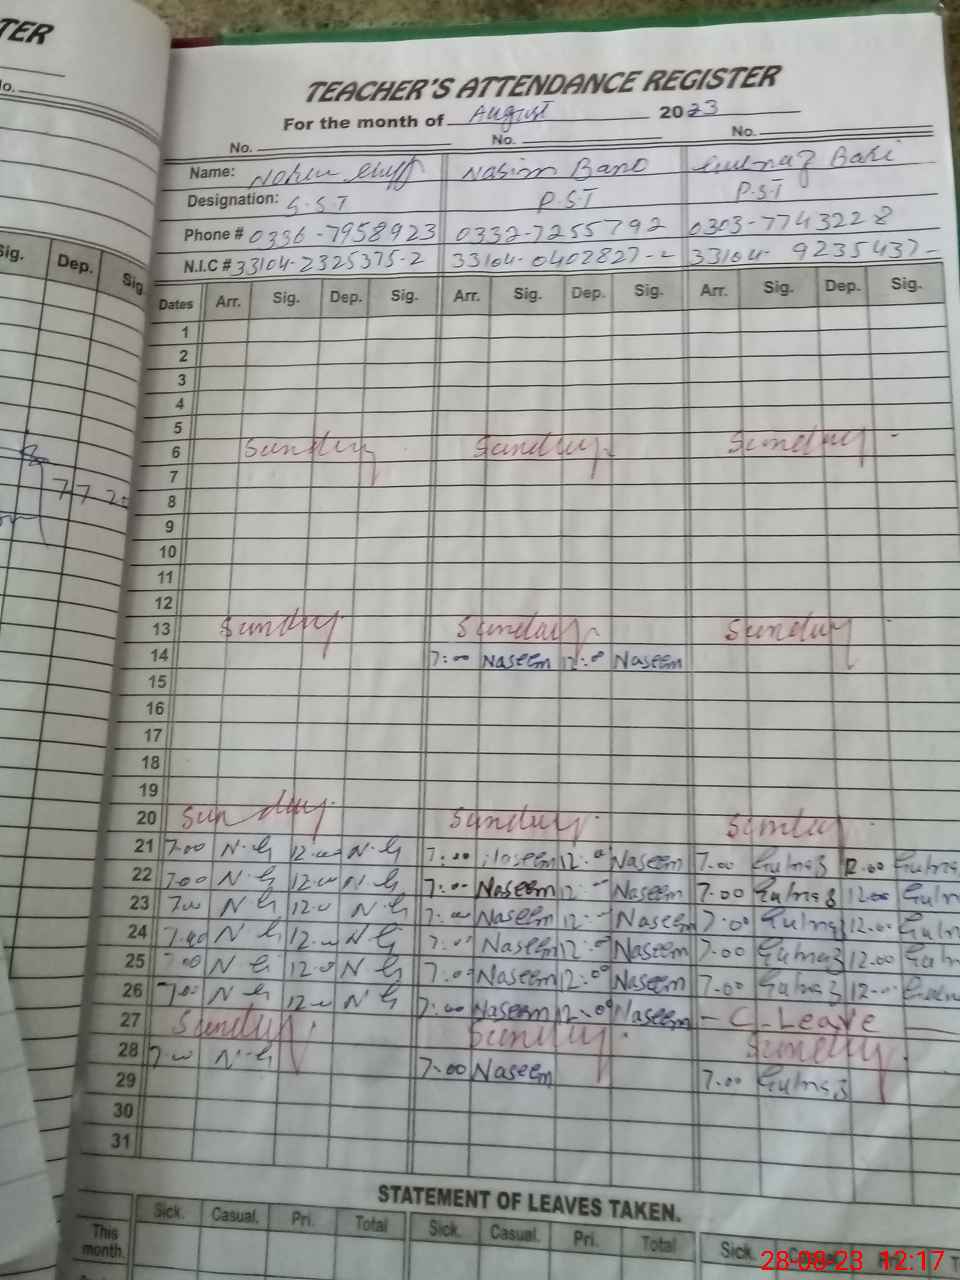 TER
No.
TEACHER'S ATTENDANCE REGISTER
For the month of August 2023
No. No. No.
Name: Nasim Bano Gulnaz Baki
Designation: S.S.T P.S.T P.S.T
Phone # 0336-7958923 0332-7255792 0303-7743228
N.I.C # 33104-2325375-2 33104-0402827-2 33104-9235437-
Sig. Dep. Sig.
Dates Arr. Sig. Dep. Sig. Arr. Sig. Dep. Sig. Arr. Sig. Dep. Sig.
1
2
3
4
5
6 Sunday Sunday Sunday
7
77 20
8
9
10
11
12
13 Sunday Sunday Sunday
14 7:00 Naseem 12:00 Naseem
15
16
17
18
19
20 Sunday Sunday Sunday
21 7.00 N.G 12.00 N.G 7:00 Naseem 12:00 Naseem 7.00 Gulnaz 12.00 Gulnaz
22 7.00 N.G 12.00 N.G 7:00 Naseem 12:00 Naseem 7.00 Gulnaz 12.00 Guln
23 7.00 N.G 12.00 N.G 7:00 Naseem 12:00 Naseem 7.00 Gulnaz 12.00 Guln
24 7.00 N G 12.00 N G 7:00 Naseem 12:00 Naseem 7.00 Gulnaz 12.00 Guln
25 7.00 N G 12.00 N G 7:00 Naseem 12:00 Naseem 7.00 Gulnaz 12.00 Guln
26 7.00 N G 12.00 N G 7:00 Naseem 12:00 Naseem - C-Leave
27 Sunday Sunday Sunday
28 7.00 N.G 7.00 Naseem 7.00 Gulnaz
29
30
31
STATEMENT OF LEAVES TAKEN.
Sick. Casual. Pri. Total Sick. Casual. Pri. Total Sick.
This month.
28-08-23 12:17